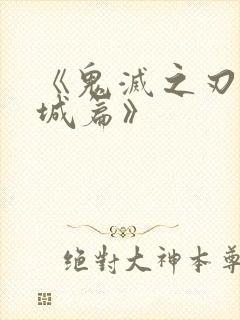 《鬼滅之刃
城篇》
絕對大神本尊